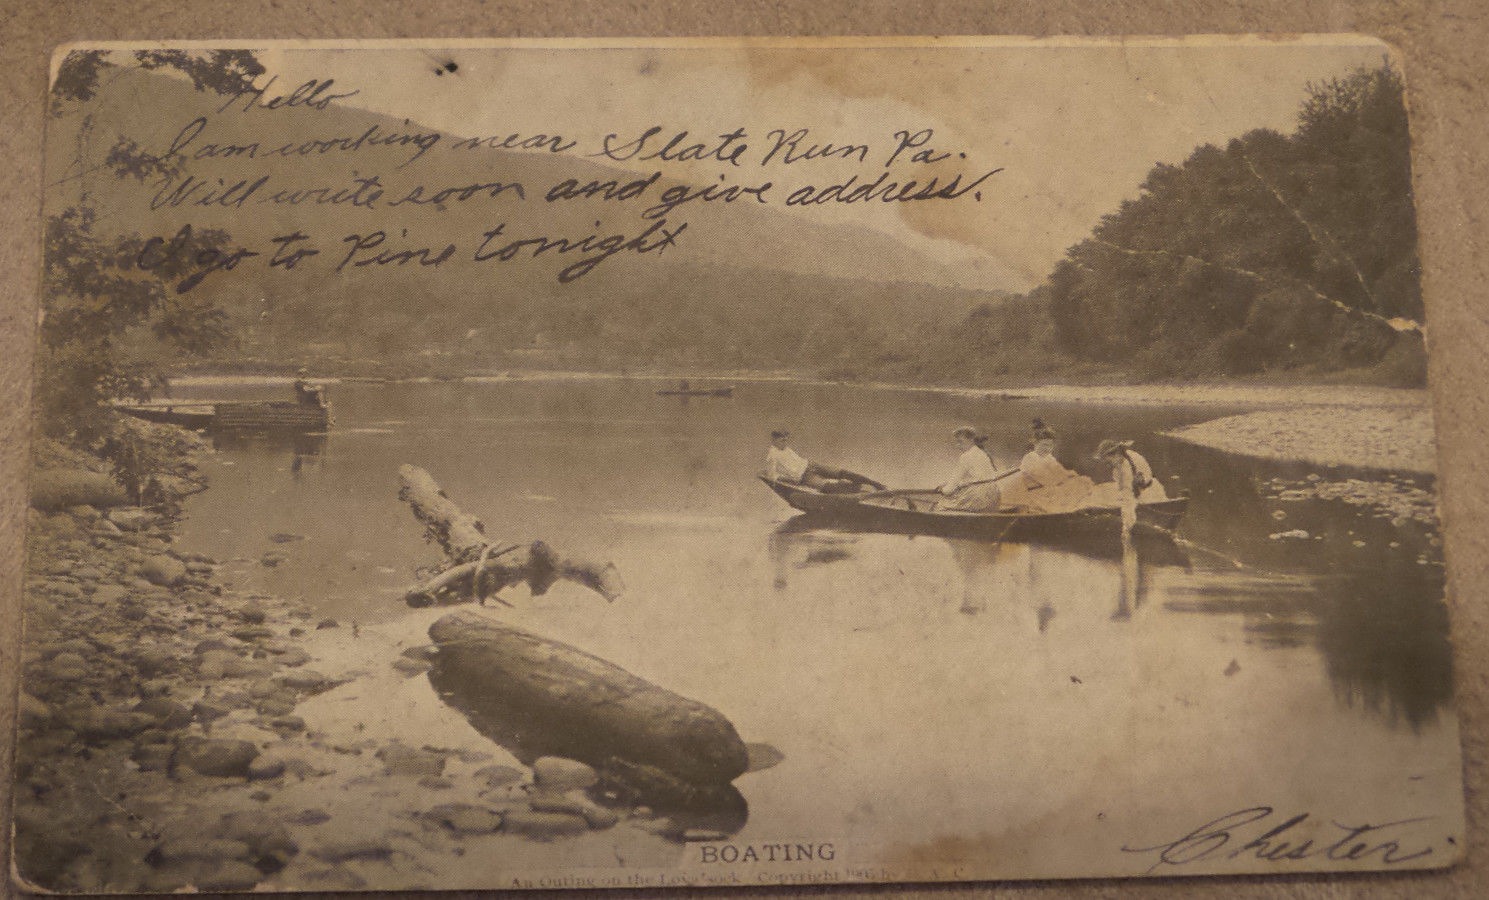 Hello
I am working near Slate Run Pa.
Will write soon and give address.
I go to Pine tonight
BOATING
Chester
An Outing on the Loyalsock Copyright